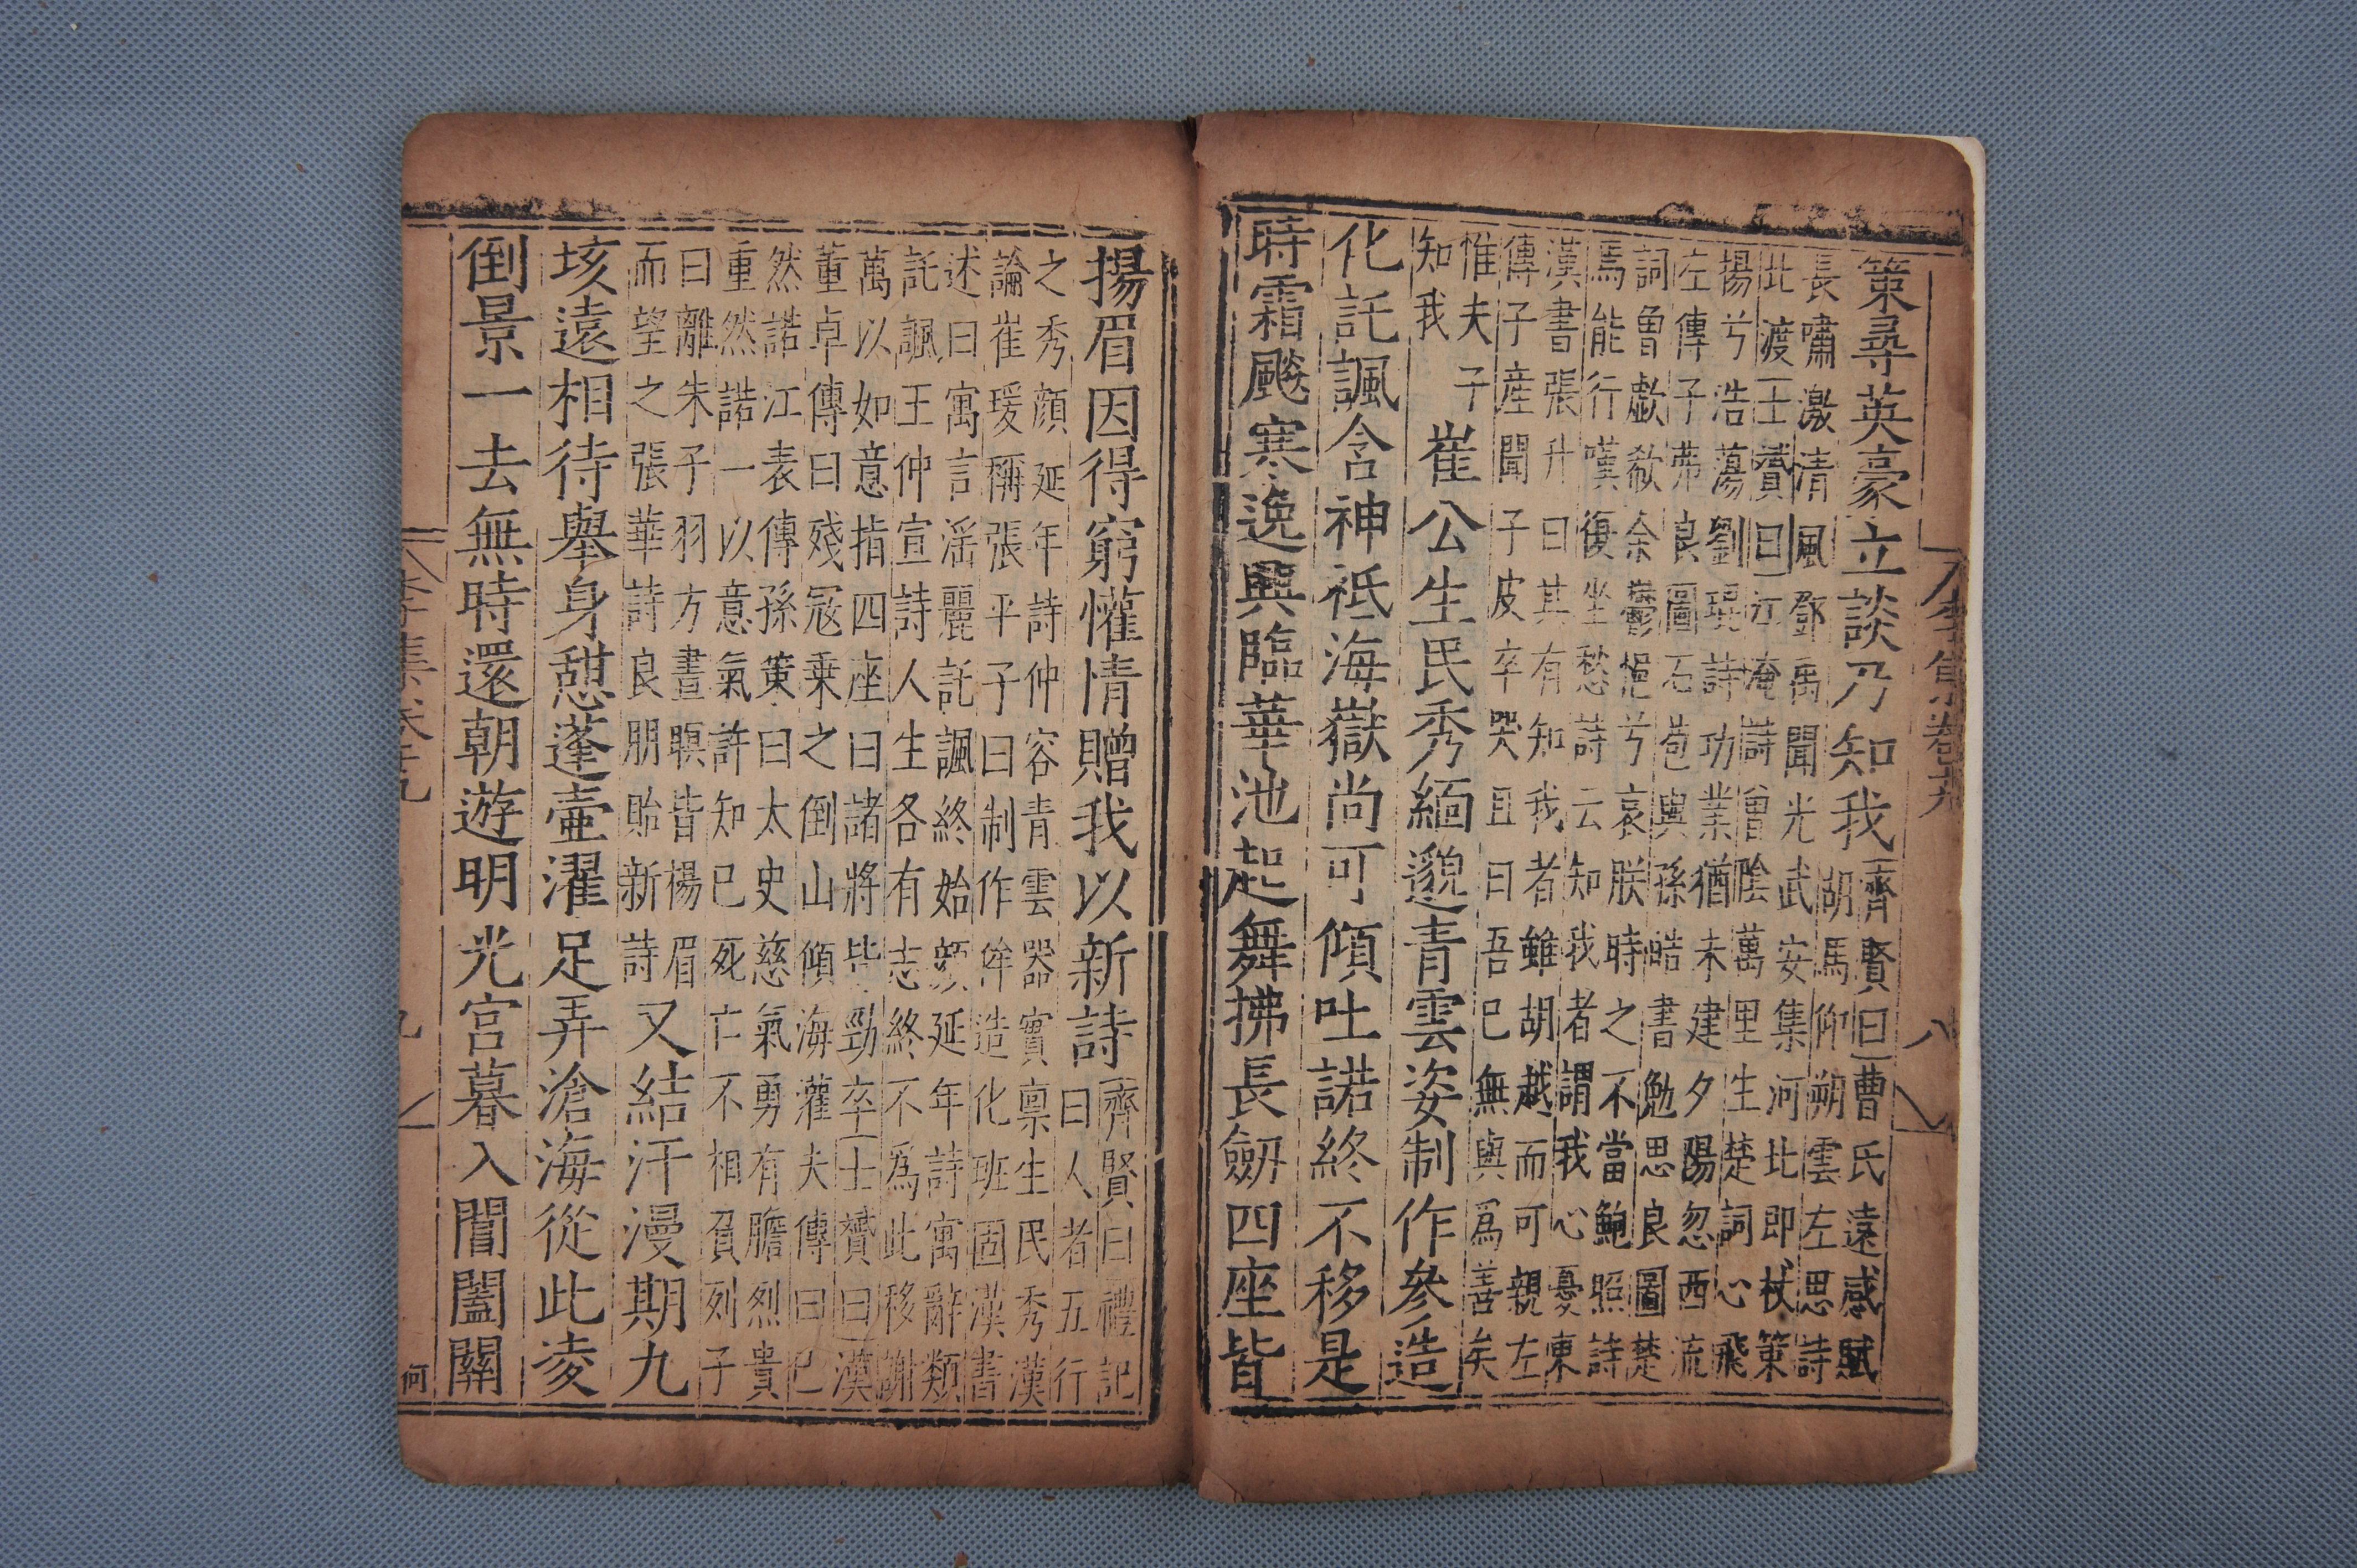 李集卷九
八
策尋英豪立談乃知我
齊賢曰曹氏遠感賦
胡馬仰朔雲左思詩
長嘯激清風鄧禹聞光武安集河北即杖策
此渡士贇曰江淹詩曾陰萬里生楚詞心飛
揚兮浩蕩劉琨詩功業猶未建夕陽忽西流
左傳子帶良圖石苞與孫皓書勉思良圖楚
詞曾歔欷余鬱悒兮哀朕時之不當鮑照詩
焉能行嘆復坐愁詩云知我者謂我心憂東
漢書張升曰其有知我者雖胡越而可親左
傳子産聞子皮卒哭且曰吾已無與爲善矣
惟夫子
知我
崔公生民秀緬邈青雲姿制作參造
化託諷含神祇海嶽尚可傾吐諾終不移是
時霜飈寒逸興臨華池起舞拂長劒四座皆
揚眉因得窮懽情贈我以新詩
齊賢曰禮記
曰人者五行
之秀顔延年詩仲容青雲器實禀生民秀漢
論崔瑗稱張平子曰制作侔造化班固漢書
述曰寓言淫麗託諷終始顔延年詩寓辭類
託諷王仲宣詩人生各有志終不爲此移謝
萬以如意指四座曰諸將皆勁卒士贇曰漢
董卓傳曰殘冦乗之倒山傾海灌夫傳曰已
然諾江表傳孫策曰太史慈氣勇有膽烈貴
重然諾一以意氣許知已死亡不相負列子
曰離朱子羽方晝瞑皆楊眉
而望之張華詩良朋貽新詩
又結汗漫期九
垓遠相待舉身憩蓬壷濯足弄滄海從此凌
倒景一去無時還朝遊明光宫暮入閶闔關
李集卷十九
九
何